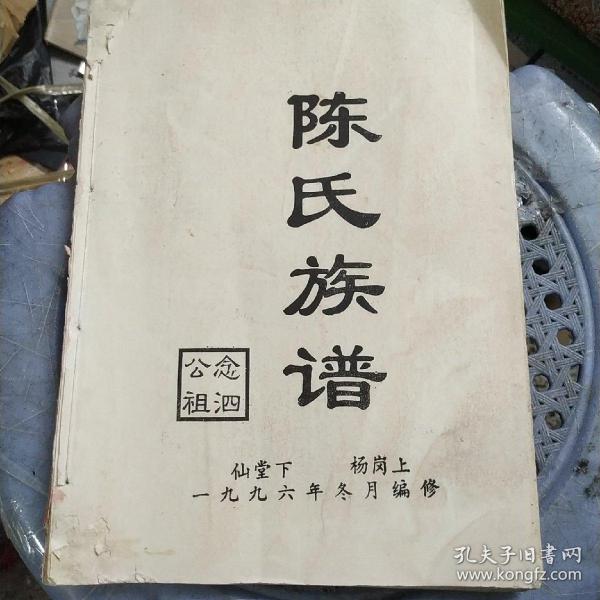 陈氏族谱
念泗
公祖
仙堂下 杨岗上
一九九六年冬月编修
孔夫子旧书网
www.kongfz.com